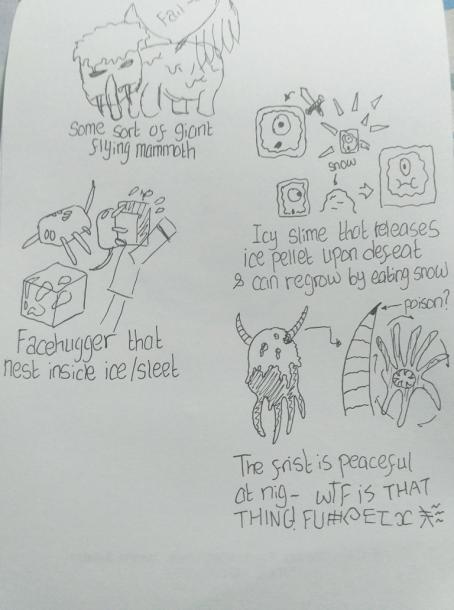 Fail
Some sort of giant
flying mammoth
snow
Icy slime that releases
ice pellet upon defeat
& can regrow by eating snow
Facehugger that
nest inside ice/sleet
poison?
The frist is peaceful
at nig- WTF IS THAT
THING! FU#@